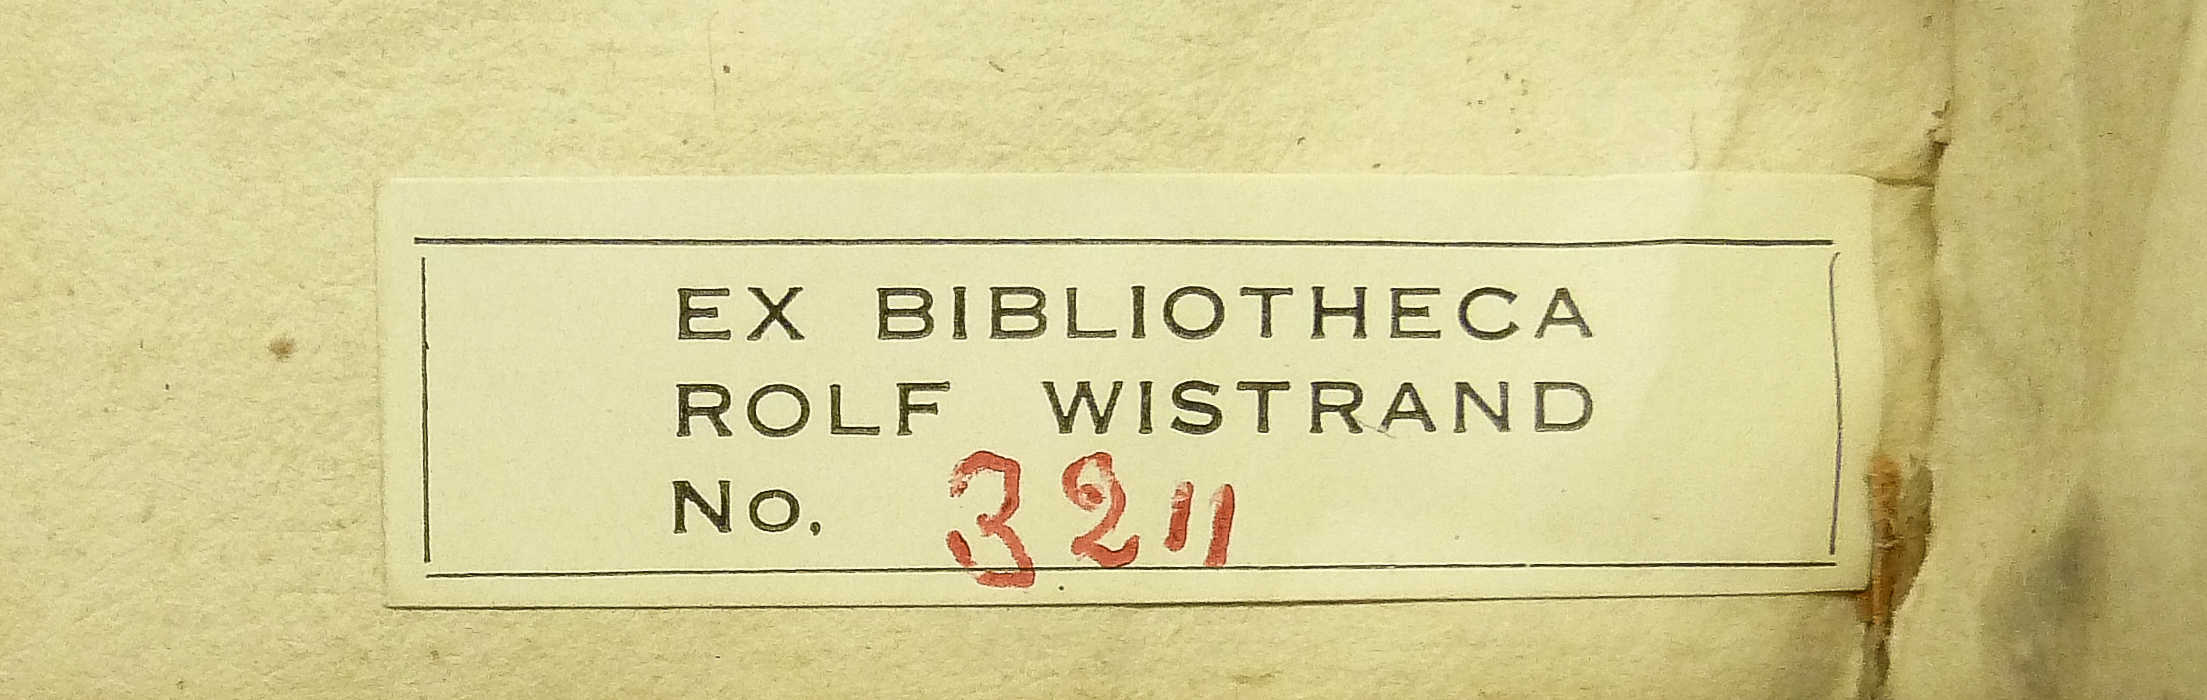 EX BIBLIOTHECA
ROLF WISTRAND
No. 3211